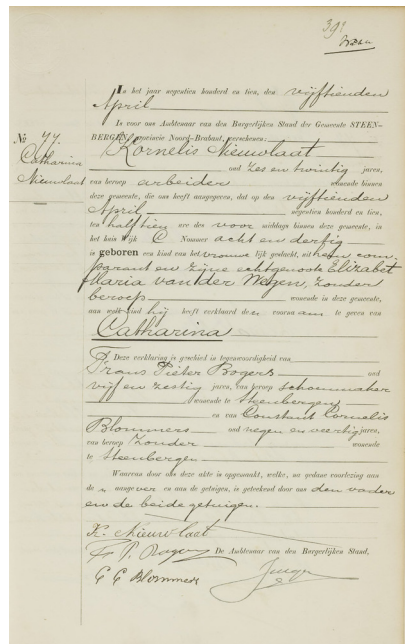 39
In het jaar negentien honderd en tien, den vijftienden
April
is voor ons Ambtenaar van den Burgerlijken Stand der Gemeente STEEN-
BERGEN, provincie Noord-Brabant, verschenen:
No 77
Catharina
Nieuwlaat
Kornelis Nieuwlaat
oud zes en twintig jaren,
van beroep arbeider wonende binnen
deze gemeente, die ons heeft aangegeven, dat op den vijftienden
April negentien honderd en tien,
ten half tien ure des voor middags binnen deze gemeente, in
het huis Wijk C Nummer acht en dertig
is geboren een kind van het vrouwelijk geslacht, uit hem com-
parant en zijne echtgenoote Elizabet
Maria van der Wegen, zonder
beroep wonende in deze gemeente,
aan welk kind hij heeft verklaard den voornaam te geven van
Catharina
Deze verklaring is geschied in tegenwoordigheid van
Frans Pieter Bogers oud
vijf en zestig jaren, van beroep schoenmaker
wonende te Steenbergen
en van Constant Cornelis
Blommers oud negen en veertig jaren,
van beroep zonder wonende
te Steenbergen
Waarvan door ons deze akte is opgemaakt, welke, na gedane voorlezing aan
de n aangever en aan de getuigen, is geteekend door ons den vader
en de beide getuigen.
K. Nieuwlaat
F P. Bogers De Ambtenaar van den Burgerlijken Stand,
C C Blommers